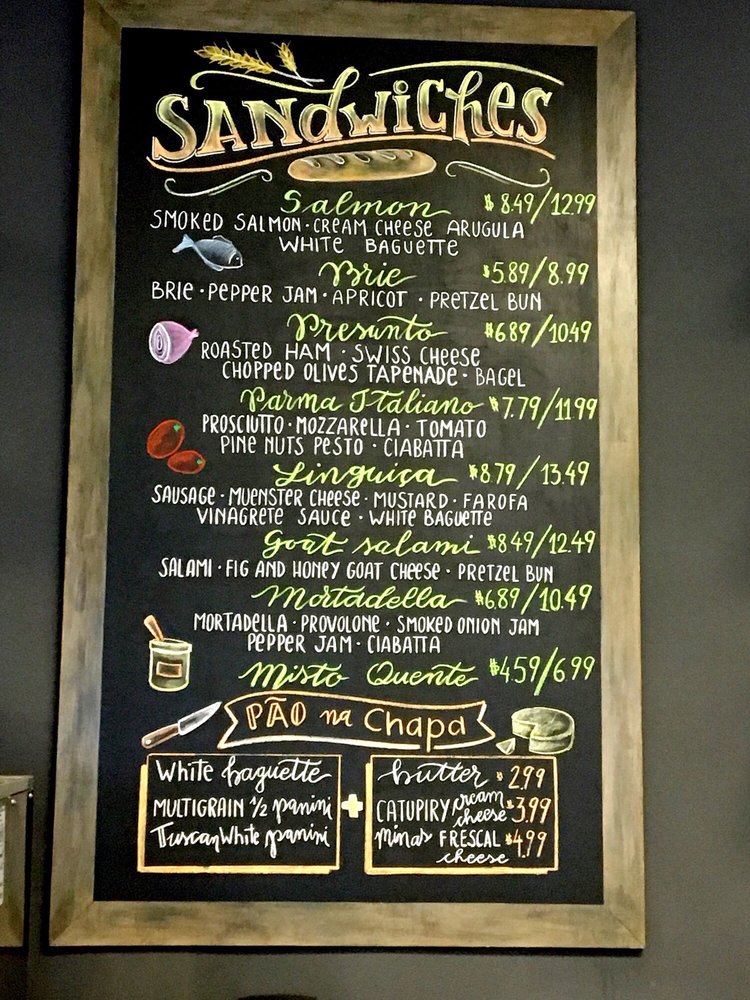 SANDwiChes
Salmon $ 8.49/12.99
SMOKED SALMON · CREAM CHEESE ARUGULA
WHITE BAGUETTE
Brie $5.89/8.99
BRIE · PEPPER JAM · APRICOT · PRETZEL BUN
Presunto $6.89/10.49
ROASTED HAM · SWISS CHEESE
CHOPPED OLIVES TAPENADE · BAGEL
Parma Italiano $7.79/11.99
PROSCIUTTO · MOZZARELLA · TOMATO
PINE NUTS PESTO · CIABATTA
Linguiça $8.79/13.49
SAUSAGE · MUENSTER CHEESE · MUSTARD · FAROFA
VINAGRETE SAUCE · WHITE BAGUETTE
Goat salami $8.49/12.49
SALAMI · FIG AND HONEY GOAT CHEESE · PRETZEL BUN
Mortadella $6.89/10.49
MORTADELLA · PROVOLONE · SMOKED ONION JAM
PEPPER JAM · CIABATTA
Misto Quente $4.59/6.99
PÃO na Chapa
White baguette
MULTIGRAIN 1/2 panini
Tuscan White panini
+
butter $ 2.99
CATUPIRY cream cheese $3.99
minas FRESCAL cheese $4.99